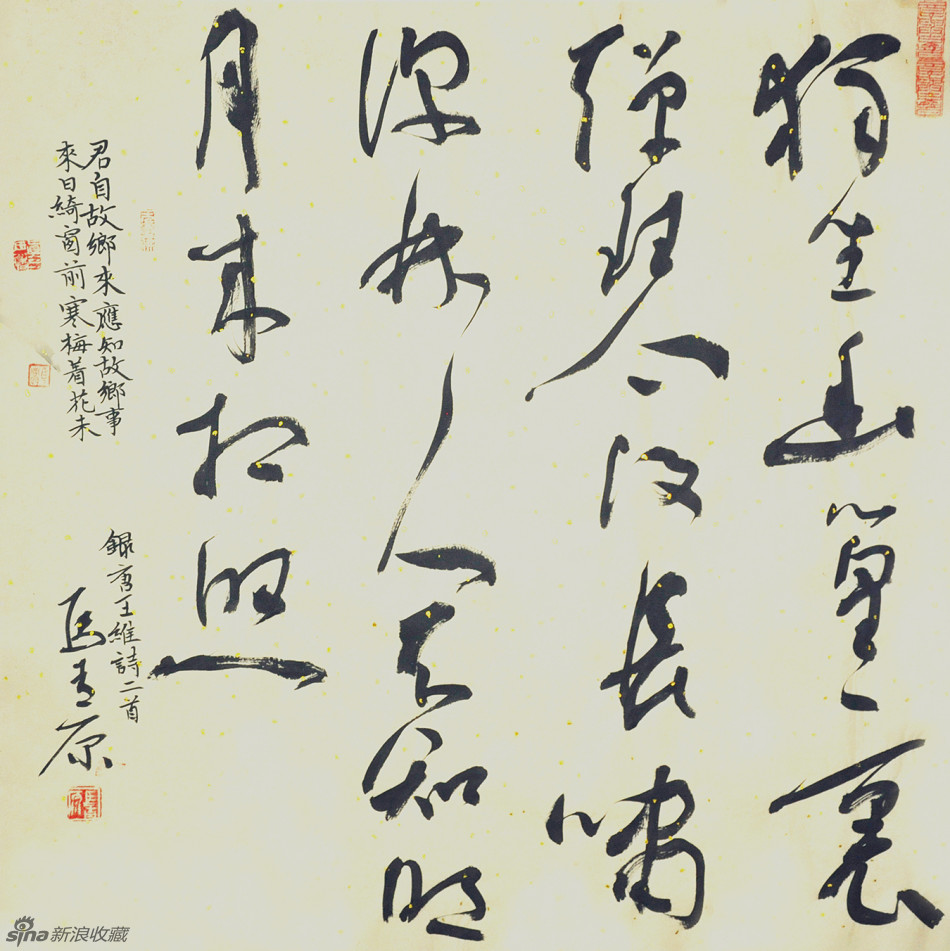 獨坐幽篁裏
彈琴復長嘯
深林人不知明
月来相照
君自故鄉來應知故鄉事
來日綺窗前寒梅着花未
錄唐王維詩二首
馬青原
sina 新浪收藏